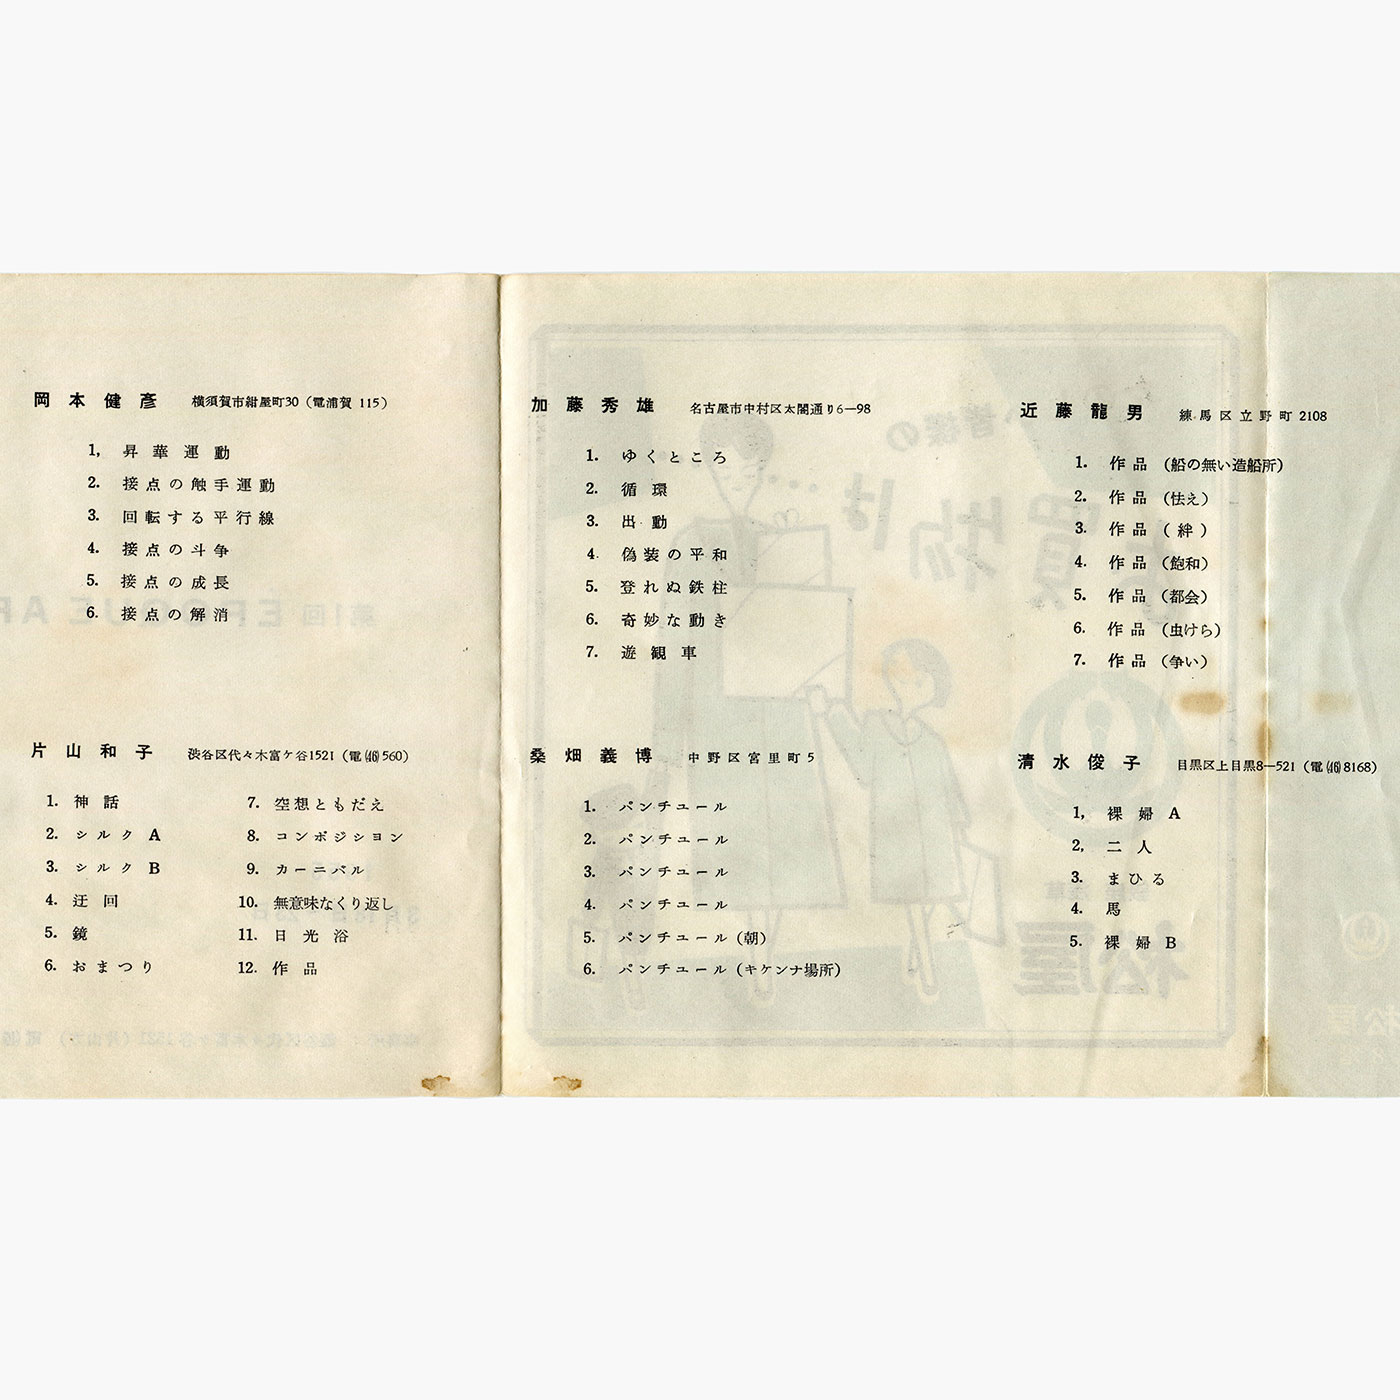 岡本健彥 横須賀市紺屋町30（電浦賀 115）
1, 昇華運動
2. 接点の触手運動
3. 回転する平行線
4. 接点の斗争
5. 接点の成長
6. 接点の解消
加藤秀雄 名古屋市中村区太閤通り6―98
1. ゆくところ
2. 循環
3. 出動
4. 偽装の平和
5. 登れぬ鉄柱
6. 奇妙な動き
7. 遊観車
近藤龍男 練馬区立野町 2108
1. 作品（船の無い造船所）
2. 作品（怯え）
3. 作品（絆）
4. 作品（飽和）
5. 作品（都会）
6. 作品（虫けら）
7. 作品（争い）
片山和子 渋谷区代々木富ケ谷1521（電㊻560）
1. 神話
2. シルク A
3. シルク B
4. 迂回
5. 鏡
6. おまつり
7. 空想ともだえ
8. コンポジション
9. カーニバル
10. 無意味なくり返し
11. 日光浴
12. 作品
桑畑義博 中野区宮里町5
1. パンチュール
2. パンチュール
3. パンチュール
4. パンチュール
5. パンチュール（朝）
6. パンチュール（キケンナ場所）
清水俊子 目黒区上目黒8―521（電㊻8168）
1, 裸婦 A
2, 二人
3. まひる
4. 馬
5. 裸婦 B